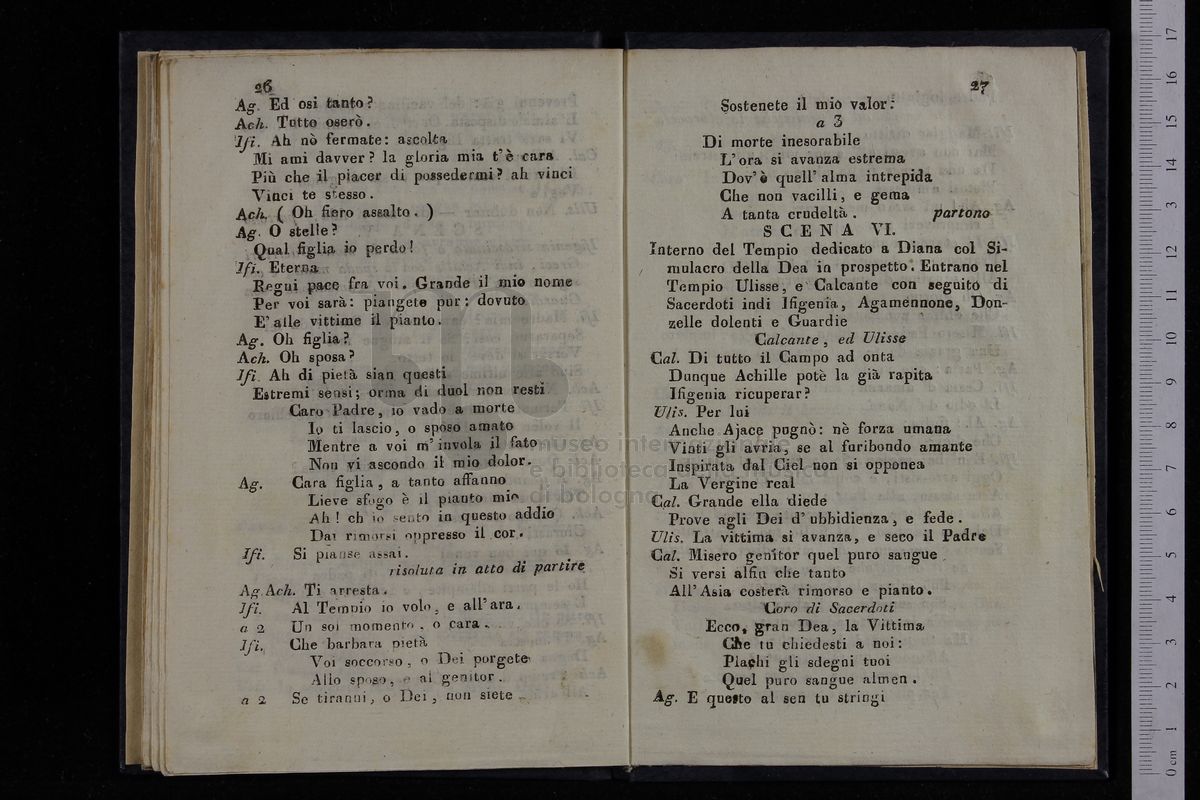 26
Ag. Ed osi tanto?
Ach. Tutto oserò.
Ifi. Ah nò fermate: ascolta
Mi ami davver? la gloria mia t'è cara
Più che il piacer di possedermi? ah vinci
Vinci te stesso.
Ach. ( Oh fiero assalto. )
Ag. O stelle?
Qual figlia io perdo!
Ifi. Eterna
Regni pace fra voi. Grande il mio nome
Per voi sarà: piangete pur: dovuto
E' alle vittime il pianto.
Ag. Oh figlia?
Ach. Oh sposa?
Ifi. Ah di pietà sian questi
Estremi sensi; orma di duol non resti
Caro Padre, io vado a morte
Io ti lascio, o sposo amato
Mentre a voi m'invola il fato
Non vi ascondo il mio dolor.
Ag. Cara figlia, a tanto affanno
Lieve sfogo è il pianto mio
Ah! ch io sento in questo addio
Dai rimorsi oppresso il cor.
Ifi. Si pianse assai.
risoluta in atto di partire
Ag. Ach. Ti arresta.
Ifi. Al Tempio io volo, e all'ara.
a 2 Un sol momento, o cara.
Ifi. Che barbara pietà
Voi soccorso, o Dei porgete
Allo sposo, e al genitor.
a 2 Se tiranni, o Dei, non siete
27
Sostenete il mio valor:
a 3
Di morte inesorabile
L'ora si avanza estrema
Dov'è quell'alma intrepida
Che non vacilli, e gema
A tanta crudeltà. partono
SCENA VI.
Interno del Tempio dedicato a Diana col Si-
mulacro della Dea in prospetto. Entrano nel
Tempio Ulisse, e Calcante con seguito di
Sacerdoti indi Ifigenia, Agamennone, Don-
zelle dolenti e Guardie
Calcante, ed Ulisse
Cal. Di tutto il Campo ad onta
Dunque Achille potè la già rapita
Ifigenia ricuperar?
Ulis. Per lui
Anche Ajace pugnò: nè forza umana
Vinti gli avria, se al furibondo amante
Inspirata dal Ciel non si opponea
La Vergine real
Cal. Grande ella diede
Prove agli Dei d'ubbidienza, e fede.
Ulis. La vittima si avanza, e seco il Padre
Cal. Misero genitor quel puro sangue
Si versi alfin che tanto
All'Asia costerà rimorso e pianto.
Coro di Sacerdoti
Ecco, gran Dea, la Vittima
Che tu chiedesti a noi:
Plachi gli sdegni tuoi
Quel puro sangue almen.
Ag. E questo al sen tu stringi
museo internazionale
e biblioteca della musica
di bologna
0 cm 1 2 3 4 5 6 7 8 9 10 11 12 13 14 15 16 17